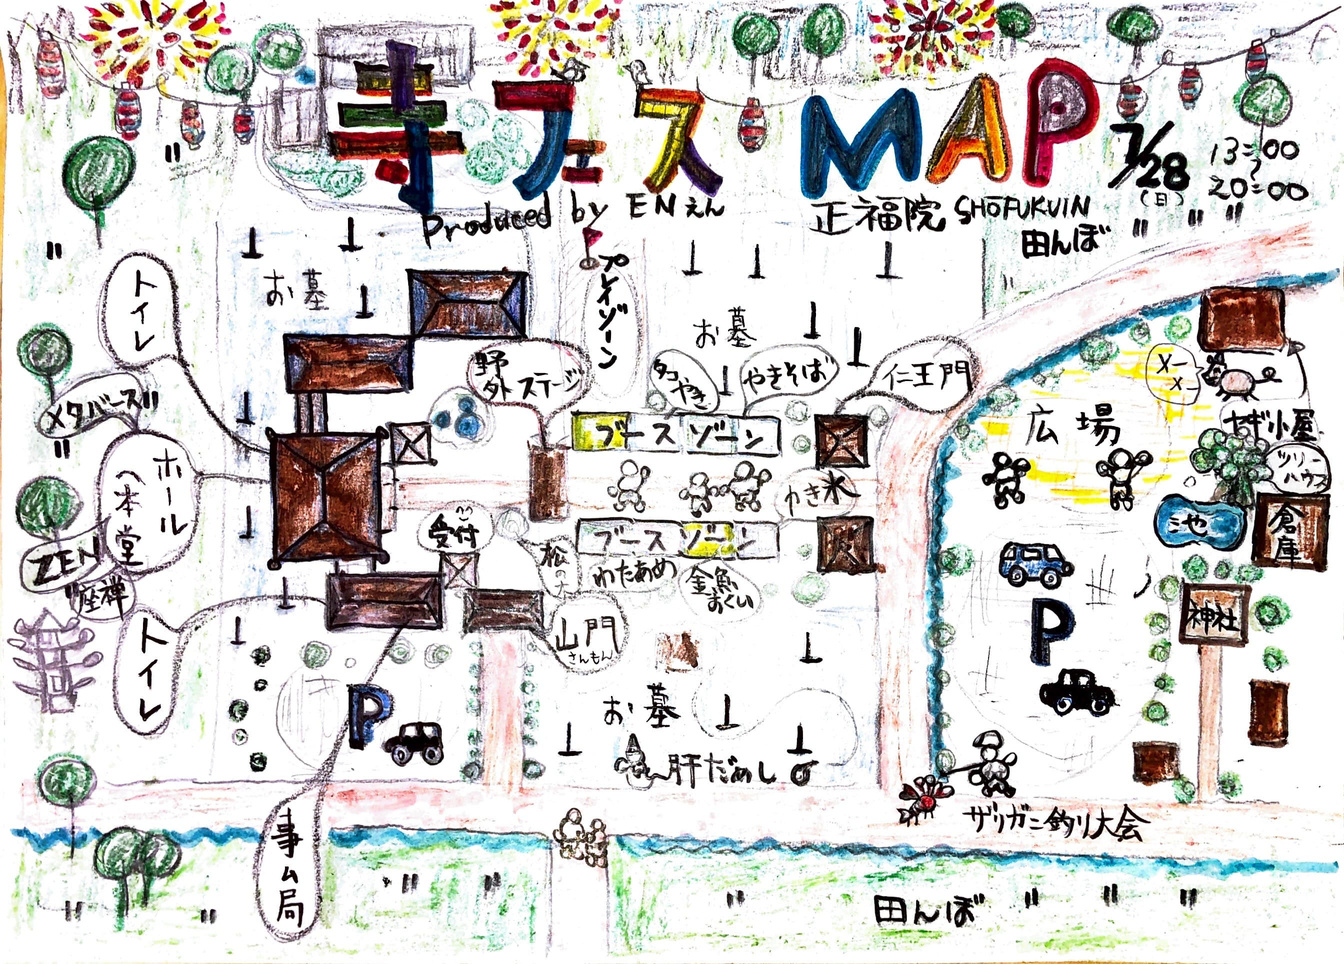 寺フェス MAP
7/28
(日)
13:00
〜
20:00
Produced by EN えん
正福院 SHŌFUKUIN
田んぼ
トイレ
お墓
プレイゾーン
お墓
野外ステージ
タコやき
やきそば
仁王門
メタバース
ブースゾーン
広場
メーメー
ヤギ小屋
ツリーハウス
ホール(本堂
受付
かき氷
池
倉庫
ブースゾーン
ZEN
座禅
松の子
わたあめ
金魚すくい
トイレ
山門
さんもん
P
神社
お墓
P
肝だめし
ザリガニ釣り大会
事ム局
田んぼ